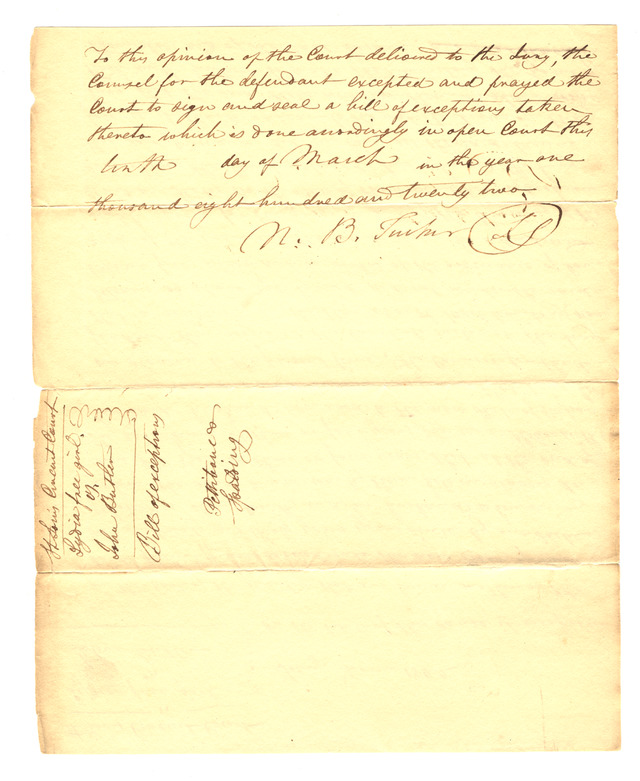 To this opinion of the Court delivered to the Jury, the
Counsel for the defendant excepted and prayed the
Court to sign and seal a bill of exceptions taken
thereto which is done accordingly in open Court this
tenth day of March in the year one
thousand eight hundred and twenty two
N. B. Tucker
St Louis Circuit Court
Lydia free girl
vs
John Butler
Bill of exceptions
Pettibone &
Spalding